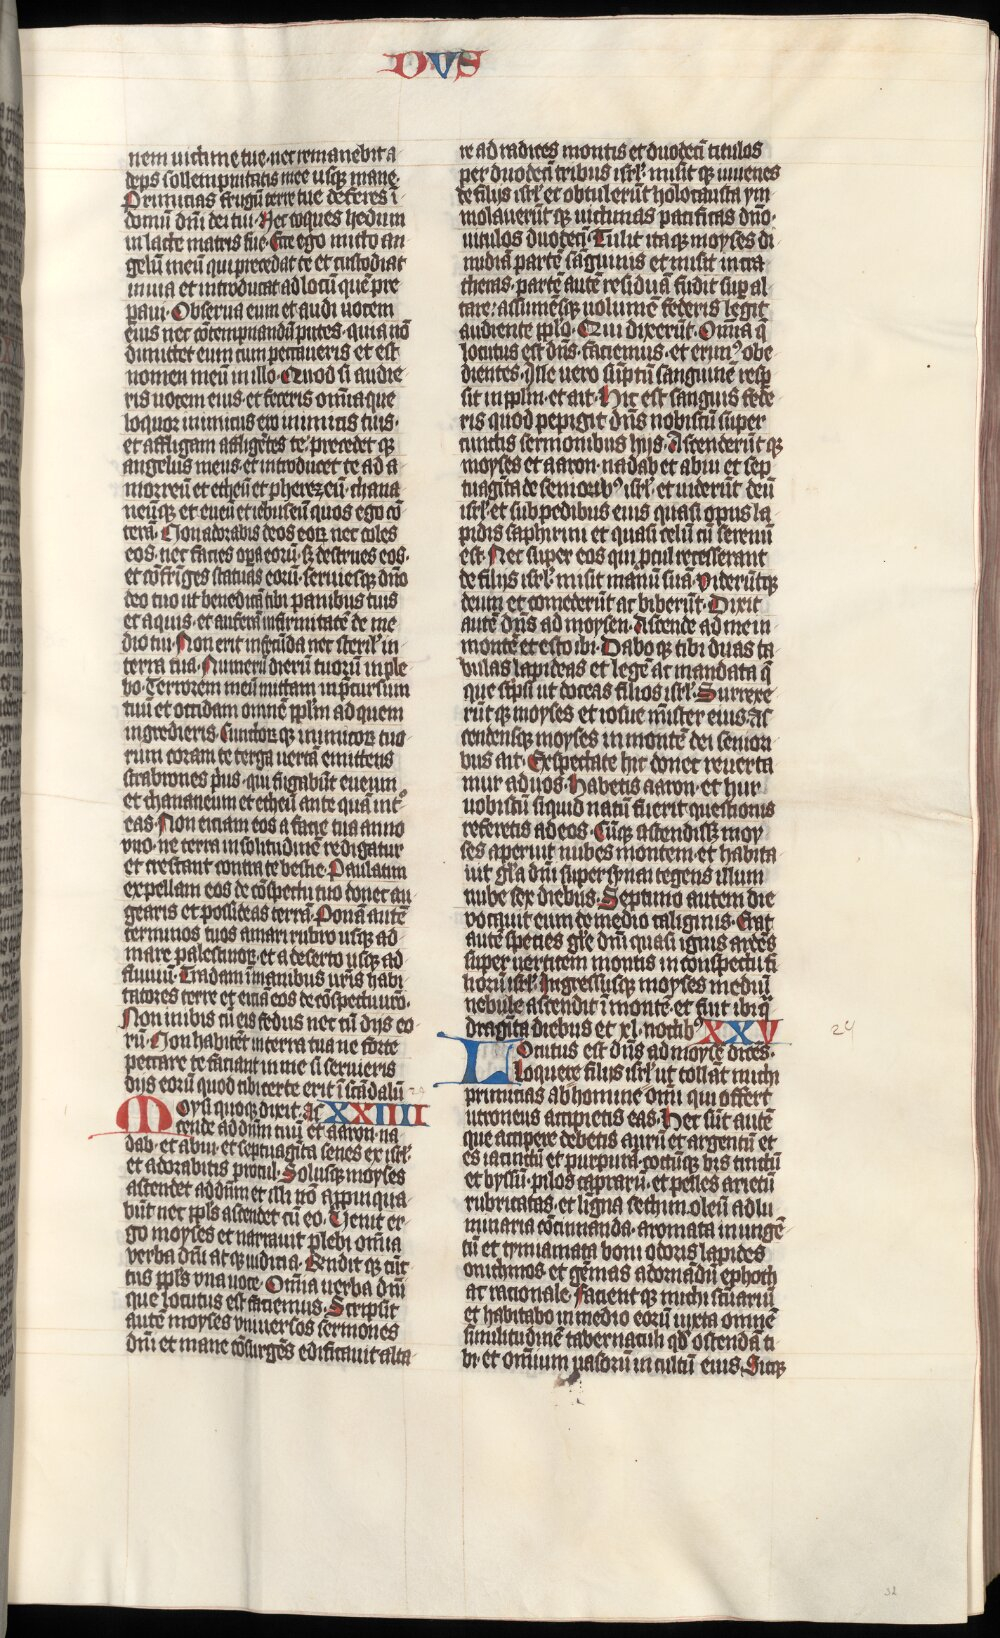 DVS
nem uictime tue. nec remanebit a
deps sollempnitatis mee usq mane.
Primicias frugū terre tue deferes ī
domū dnī dei tui. Nec coques hedum
in lacte matris sue. Ecce ego micto an
gelū meū qui precedat te et custodiat
in uia et introducat ad locū quē pre
paui. Obserua eum et audi uocem
eius nec cōtempnandū putes. quia nō
dimittet eum cum peccaueris et est
nomen meū in illo. Quod si audie
ris uocem eius et feceris om̄ia que
loquor inimicus ero inimicis tuis.
et affligam affligētes te. precedet q̄
angelus meus et introducet te ad a
morreū et etheū et pherezeū. chana
neūq et eueū et iebuseū quos ego cō
terā. Non adorabis deos eoꝝ nec coles
eos. nec facies oꝑa eorū. sꝫ destrues eos.
et cōfrīges statuas eorū. seruiesq dn̄o
deo tuo ut benedicā tibi panibus tuis
et aquis. et auferā infirmitatē de me
dio tui. Non erit infecūda nec steril' in
terra tua. Numerū dierū tuorū inple
bo. Terrorem meū mittam in p̄cursum
tuū et occidam omnē ppl'm ad quem
ingredieris. Cunctoꝝ q̄ inimicoꝝ tuo
rum coram te terga uertā emittens
scrabrones p̄us. qui fugabūt eueum
et chananeum et etheū ante quā int
eas. Non eiciam eos a facie tua anno
vno. ne terra in solitudinē redigatur
et crescant contra te bestie. Paulatim
expellam eos de cōspectu tuo donec au
gearis et possideas terrā. Ponā autē
terminos tuos a mari rubro usq ad
mare palestinoꝝ et a deserto usq ad
fluuiū. Tradam ī manibus urīs habi
tatores terre et eiciā eos de cōspectu uro.
Non inibis cū eis fedus nec cū dijs eo
rū. Non habitēt in terra tua ne forte
peccare te faciant in me si seruieris
dijs eorū quod tibi certe erit ī scādalū 24
Moysi quoq dixit. As XXIIII
cende ad dn̄m tuū et aaron. na
dab. et abiu. et septuagīta senes ex isrl'.
et adorabitis procul. Solusq moyses
ascendet ad dn̄m et illi nō appīnqua
būt nec ppl's ascendet cū eo. Uenit er
go moyses et narrauit plebi om̄ia
verba dn̄i atq iudicia. Rendit q̄ cūc
tus ppl's vna uoce. Om̄ia uerba dn̄i
que locutus est faciemus. Scripsit
autē moyses vniuersos sermones
dn̄i et mane cōsurgēs edificauit alta
re ad radices montis et duodecī titulos
per duodecī tribus isrl'. misit q̄ iuuenes
de filijs isrl' et obtulerūt holocausta ym
molauerūt q̄ uictimas pacificas dn̄o.
uitulos duodecī. Tulit itaq moyses di
midiā partē sāguinis et misit in cra
theras. partē autē residuā fudit sup al
tare. assumēsq uolumē federis legit
audiente pplo. Qui dixerūt. Om̄ia q̄
locutus est dn̄s. faciemus. et erim⁹ obe
dientes. Ille uero sūptū sanguinē resp
sit in ppl'm. et ait. Hic est sanguis fede
ris quod pepigit dn̄s nobiscū super
cunctis sermonibus hijs. Ascenderūt q̄
moyses et aaron. nadab et abiu et sep
tuagīta de seniorib⁹ isrl'. et uiderūt deū
isrl'. et sub pedibus eius quasi opus la
pidis saphirini et quasi celū cū serenū
est. Nec super eos qui ꝓcul recesserant
de filijs isrl'. misit manū suā. Viderūtq
deum et comederūt ac biberūt. Dixit
autē dn̄s ad moysen. Ascende ad me in
montē et esto ibi. Dabo q̄ tibi duas ta
bulas lapideas et legē ac mandata q̄
que scpsi ut doceas filios isrl'. Surrexe
rūt q̄ moyses et iosue mīster eius. As
cendensq moyses in montē dei seniori
bus ait. Exspectate hic donec reuerta
mur ad uos. Habetis aaron. et hur
uobiscū siquid natū fuerit questionis
referetis ad eos. Cūq ascendisset moy
ses aperuit nubes montem. et habita
uit gl'a dn̄i super synai tegens illum
nube sex diebus. Septimo autem die
vocauit eum de medio caliginis. Erat
autē species gl'e dn̄i quasi ignis ardēs
super uerticem montis in conspectu fi
liorū isrl'. Ingressusq moyses mediū
nebule ascendit ī montē. et fuit ibi q̄
dragīta diebus et xl. noctib⁹ XXV
Locutus est dn̄s ad moysē dicēs.
Loquere filijs isrl' ut tollāt michi
primicias ab homine om̄i qui offert
ultroneus accipietis eas. Hec sūt autē
que accipere debetis aurū et argentū et
es iacinctū et purpurā. coctūq bis tinctū
et byssū. pilos caprarū. et pelles arietū
rubricatas. et ligna sethim. oleū ad lu
minaria cōcinnanda. aromata in ungē
tū et tymiamata boni odoris lapides
onichinos et gēmas ad ornādū ephoth
ac racionale. Facient q̄ michi scūariū
et habitabo in medio eorū iuxta omnē
similitudinē tabernaculi qd' ostendā ti
bi. et om̄ium uasorū in cultū eius. Sicq
24
32